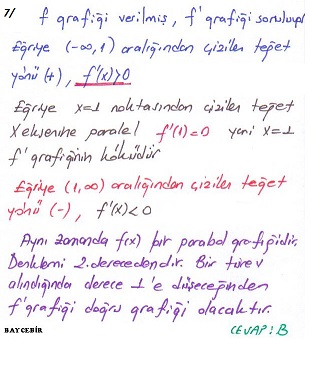 7/ f grafiği verilmiş, f' grafiği soruluyor
Eğriye (-∞,1) aralığından çizilen teğet
yönü (+), f'(x)>0
Eğriye x=1 noktasından çizilen teğet
X eksenine paralel f'(1)=0 yani x=1
f' grafiğinin köküdür
Eğriye (1,∞) aralığından çizilen teğet
yönü (-), f'(x)<0
Aynı zamanda f(x) bir parabol grafiğidir.
Denklemi 2.derecedendir. Bir türev
alındığında derece 1'e düşeceğinden
f' grafiği doğru grafiği olacaktır.
BAYCEBİR CEVAP: B